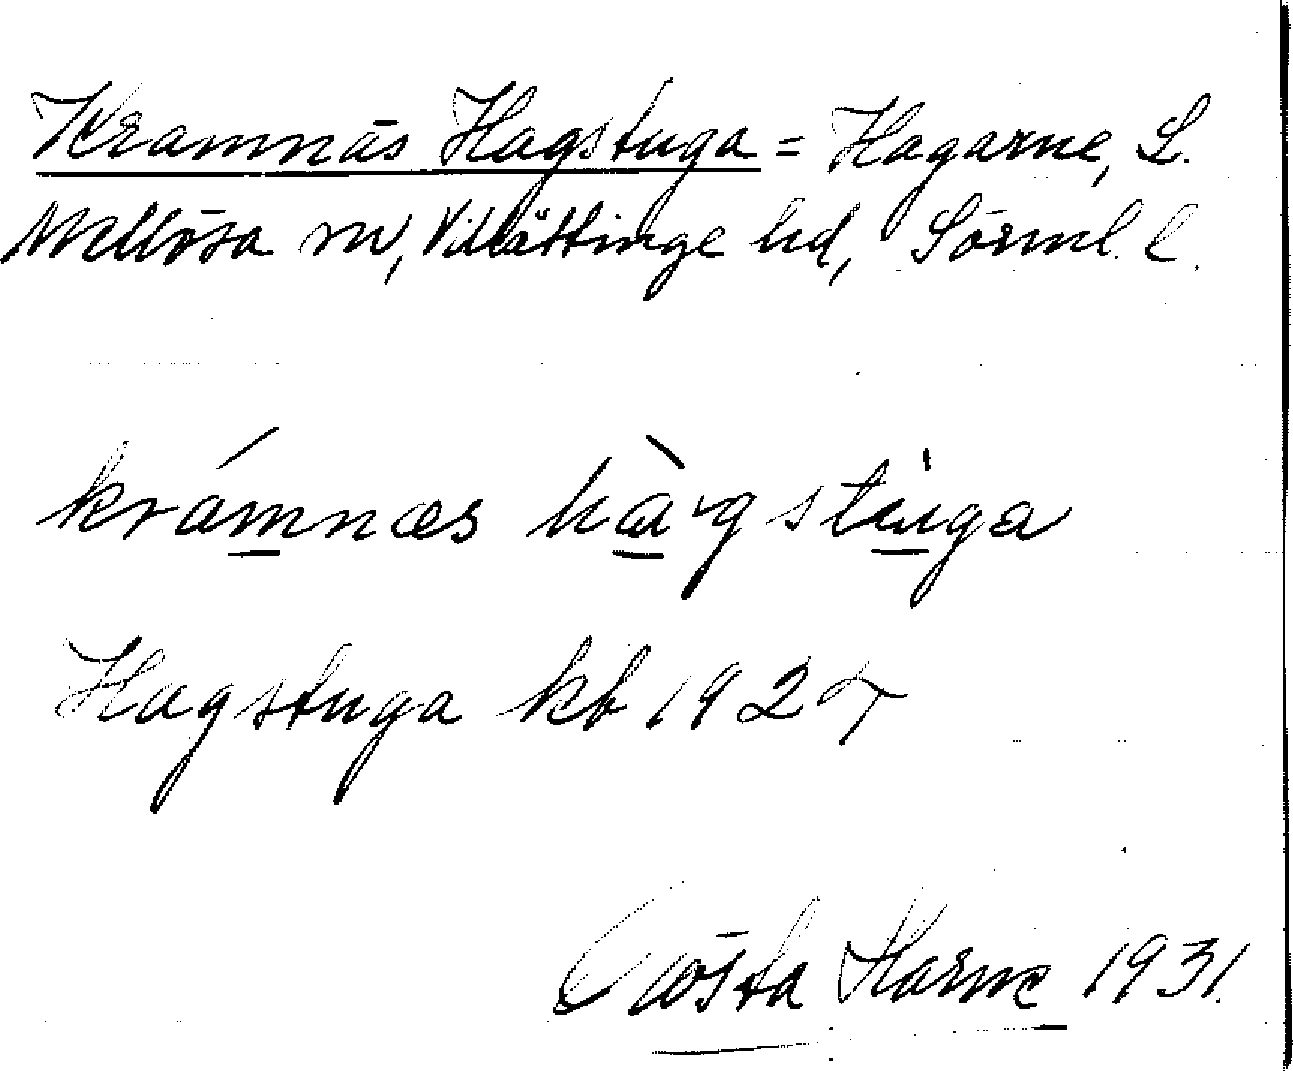 Kramnäs Hagstuga = Hagarne, L.
Mellösa sn, Villåttinge hd, Sörml. l.
krámnæs hàgstuga
Hagstuga kb 1927
Gösta Harne 1931.